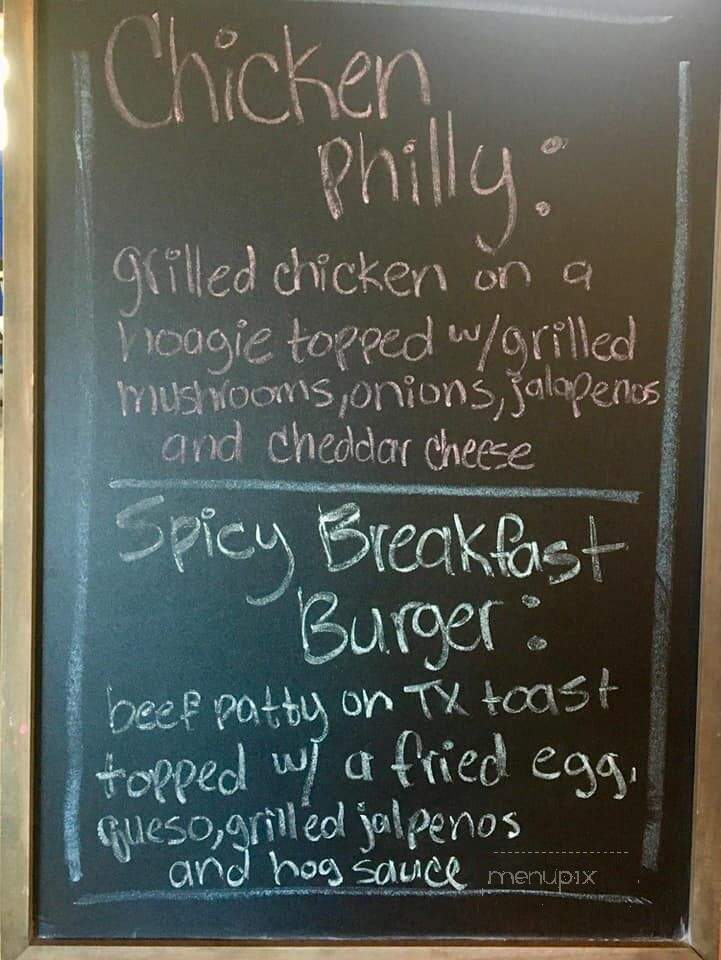 Chicken
Philly:
grilled chicken on a
hoagie topped w/grilled
mushrooms, onions, jalapenos
and cheddar cheese
Spicy Breakfast
Burger:
beef patty on TX toast
topped w/ a fried egg,
queso, grilled jalpenos
and hog sauce
menupix